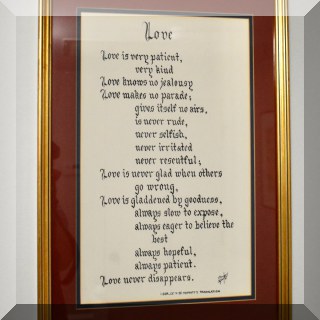 Love
Love is very patient,
very kind
Love knows no jealousy
Love makes no parade;
gives itself no airs,
is never rude,
never selfish,
never irritated
never resentful;
Love is never glad when others
go wrong,
Love is gladdened by goodness,
always slow to expose,
always eager to believe the
best
always hopeful,
always patient.
Love never disappears.